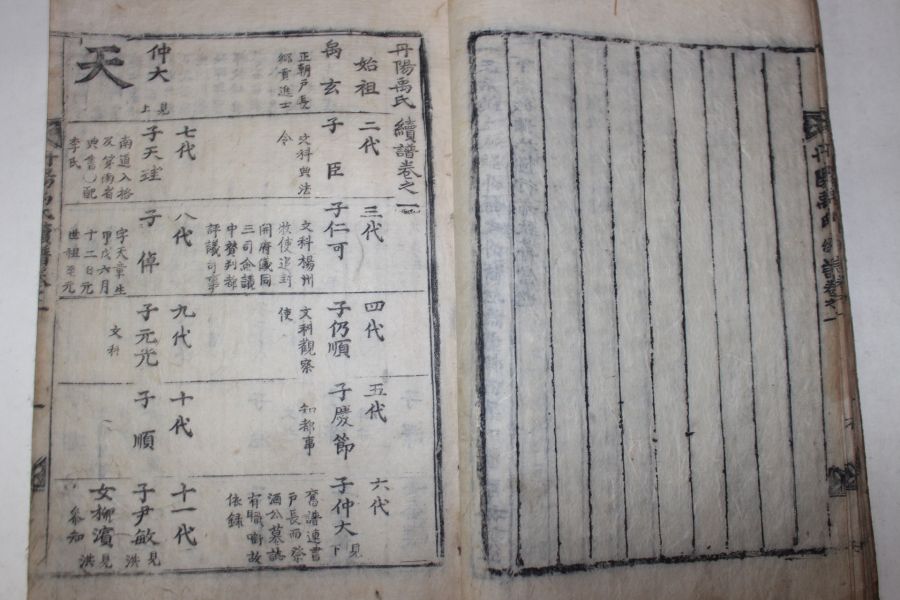 丹陽禹氏 續譜卷之一
始祖
禹玄
正朝戶長
鄉貢進士
仲大 見上
天
二代
子臣
文科典法
令
七代
子天珪
南道入格
及第南省
李氏
三代
子仁可
文科楊州
牧使追封
開府儀同
三司僉議
中贊判都
評議司事
八代
子倬
字天章生
甲戌六月
十二日元
世祖至元
四代
子仍順
文科觀察
使
九代
子元光
文科
五代
子慶節
知都事
十代
子順
六代
子仲大 見下
舊譜連書
戶長而祭
酒公墓誌
有職啣故
依錄
十一代
子尹敏 見洪
女柳濱 見洪
參知
丹陽禹氏續譜卷之一